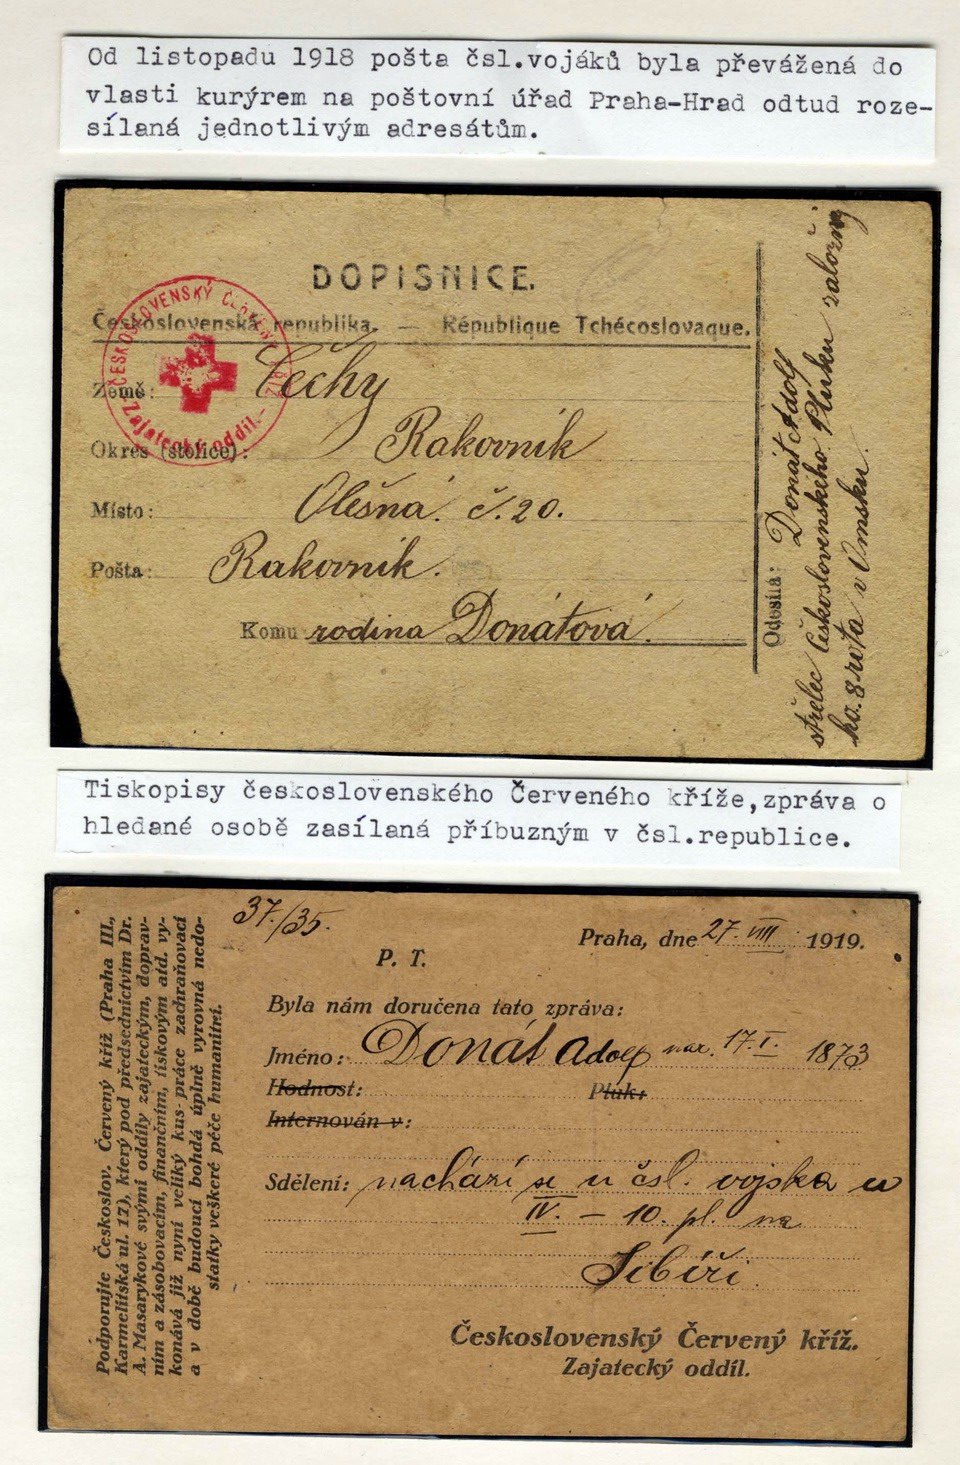 Od listopadu 1918 pošta čsl.vojáků byla převážená do
vlasti kurýrem na poštovní úřad Praha-Hrad odtud roze-
sílaná jednotlivým adresátům.
DOPISNICE.
Československá republika. — République Tchécoslovaque.
ČESKOSLOVENSKÝ ČERVENÝ KŘÍŽ
Zajatecký oddíl.
Země: Čechy
Okres (stolice): Rakovník
Místo: Olešná. č. 20.
Pošta: Rakovník.
Komu rodina Donátová.
Odesílá: Donát Adolf
střelec Československého Pluku záložný
ho. 8 rota v Omsku.
Tiskopisy československého Červeného kříže,zpráva o
hledané osobě zasílaná příbuzným v čsl.republice.
Podporujte Českoslov. Červený kříž (Praha III.,
Karmelitská ul. 12), který pod předsednictvím Dr.
A. Masarykové svými oddíly zajateckým, doprav-
ním a zásobovacím, finančním, tiskovým atd. vy-
konává již nyní veliký kus práce zachraňovací
a v době budoucí bohdá úplně vyrovná nedo-
statky veškeré péče humanitní.
37./35.
Praha, dne 27. VIII 1919.
P. T.
Byla nám doručena tato zpráva:
Jméno: Donát Adolf nar. 17. I. 1873
Hodnost: Pluk:
Internován v:
Sdělení: nachází se u čsl. vojska u
IV. – 10. pl. na
Sibíři.
Československý Červený kříž.
Zajatecký oddíl.